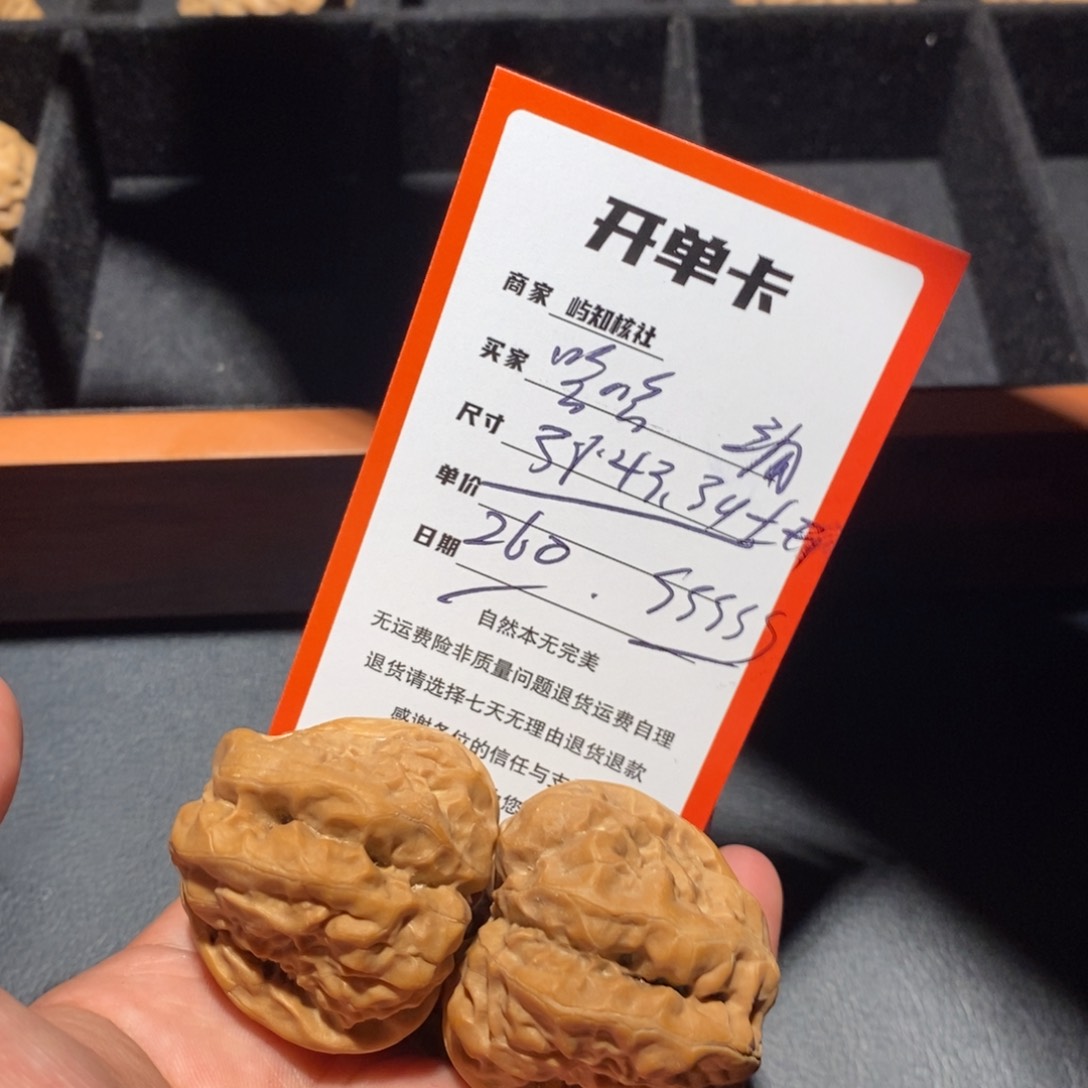 开单卡
商家 屿知核社
买家
尺寸 39.43.34
单价 260 . SSSSS
日期
自然本无完美
无运费险非质量问题退货运费自理
退货请选择七天无理由退货退款
感谢各位的信任与支
您